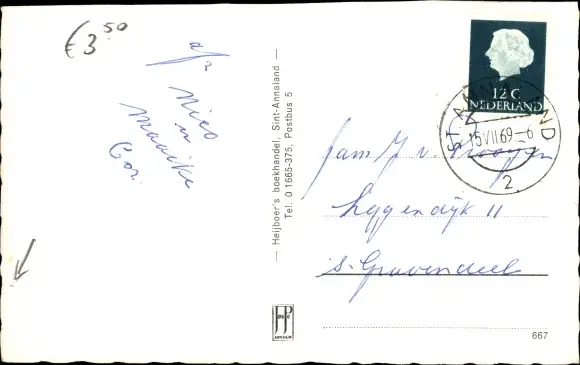 €3.50
afz
Nico
en
Maaike
Cor.
— Heijboer's boekhandel, Sint-Annaland —
Tel. 0 1665-375, Postbus 5
12 C
NEDERLAND
ST ANNALAND
15 VII 69 – 6
2
Fam J v.
11
s-Gravendeel
667